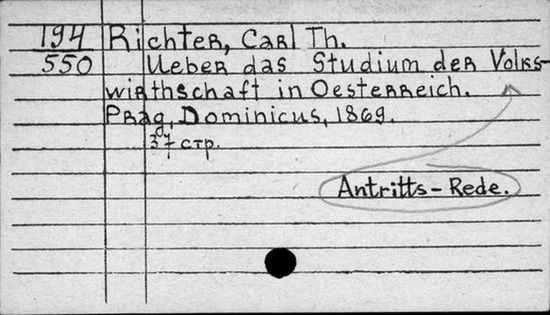 194 Richter, Carl Th.
550 Ueber das Studium der Volks-
wirthschaft in Oesterreich.
Prag, Dominicus, 1869.
37 стр.
Antritts-Rede.